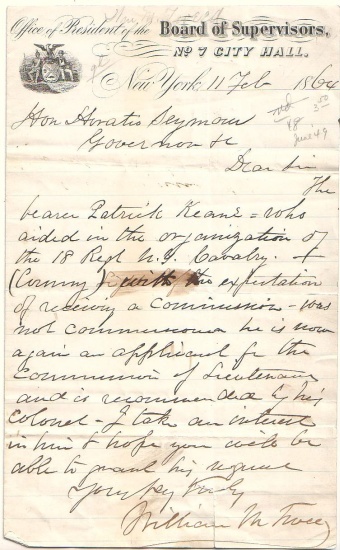 Office of President of the Board of Supervisors,
No 7 CITY HALL.
New York 11 Feb 1864
Hon Horatio Seymour
Governor &c
Dear Sir
The
bearer Patrick Keane = who
aided in the organization of
the 18 Regt N.Y. Cavalry. +
(Corning) with the expectation
of receiving a Commission - was
not commissioned he is now
again an applicant for the
Commission of Lieutenant
and is recommended by his
colonel - I take an interest
in him & hope you will be
able to grant his request
Yours
William M Tweed